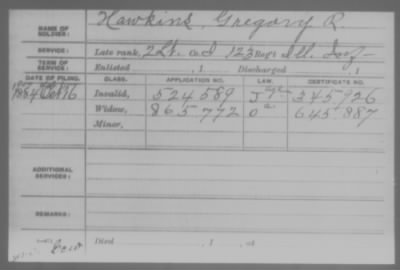 NAME OF SOLDIER: Hawkins, Gregory R.
SERVICE: Late rank, 2 Lt. Co. I, 123 Reg't Ill. Inf.
TERM OF SERVICE: Enlisted , 1 Discharged , 1
DATE OF FILING. CLASS. APPLICATION NO. LAW. CERTIFICATE NO.
1884 Oct 16 Invalid, 524 589 J 345 926
Widow, 865 772 O 645 887
Minor,
ADDITIONAL SERVICES:
REMARKS:
Died , 1 , at